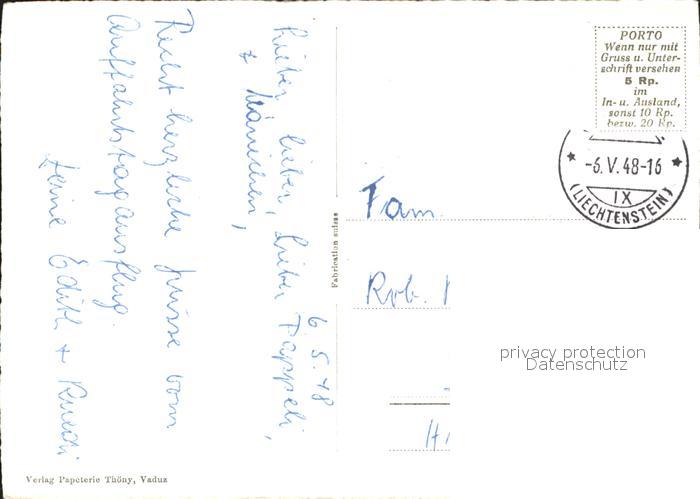 6. 5. 48
Lieber, lieber, lieber Pappeli,
+ Mamichen,
Recht herzliche Grüsse vom
Auffahrtstagausflug.
Edith + Ruedi
Fabrication suisse
Verlag Papeterie Thöny, Vaduz
PORTO
Wenn nur mit
Gruss u. Unter-
schrift versehen
5 Rp.
im
In- u. Ausland,
sonst 10 Rp.
bezw. 20 Rp.
* -6. V. 48-16 *
IX
(LIECHTENSTEIN)
Fam.
Rob.
privacy protection
Datenschutz